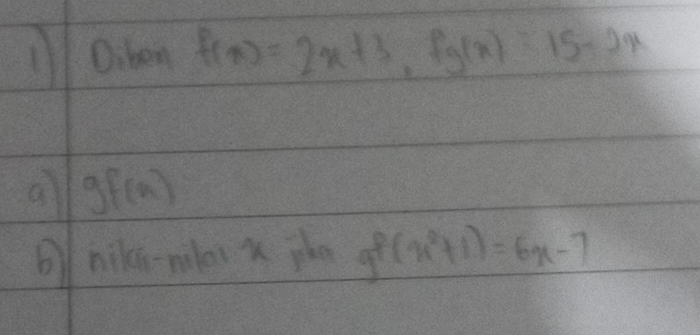 1) Diberi f(x) = 2x+3, fg(x) = 15-2x
a) gf(x)
b) nilai-nilai x jika gf(x²+1) = 6x-7